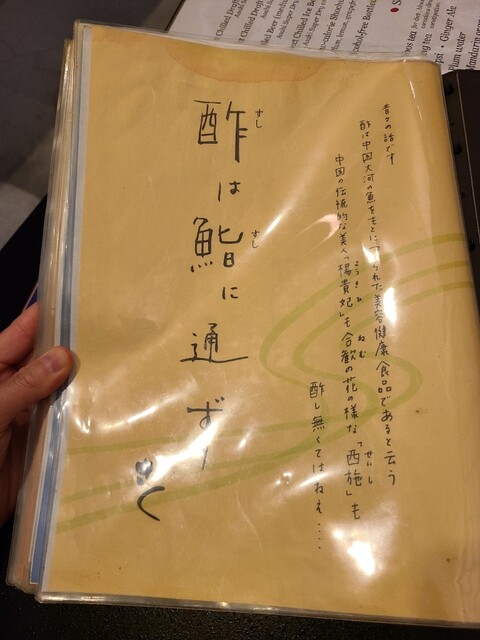 Ginger Ale
昔々の話です
酢は中国大河の魚をもとにつくられた美容健康食品であると云う
中国の伝統的な美人「楊貴妃」も合歓の花の様な「西施」も
ねむ
せいし
酢し無くてはねぇ....
酢は鮨に通ず
すし
すし